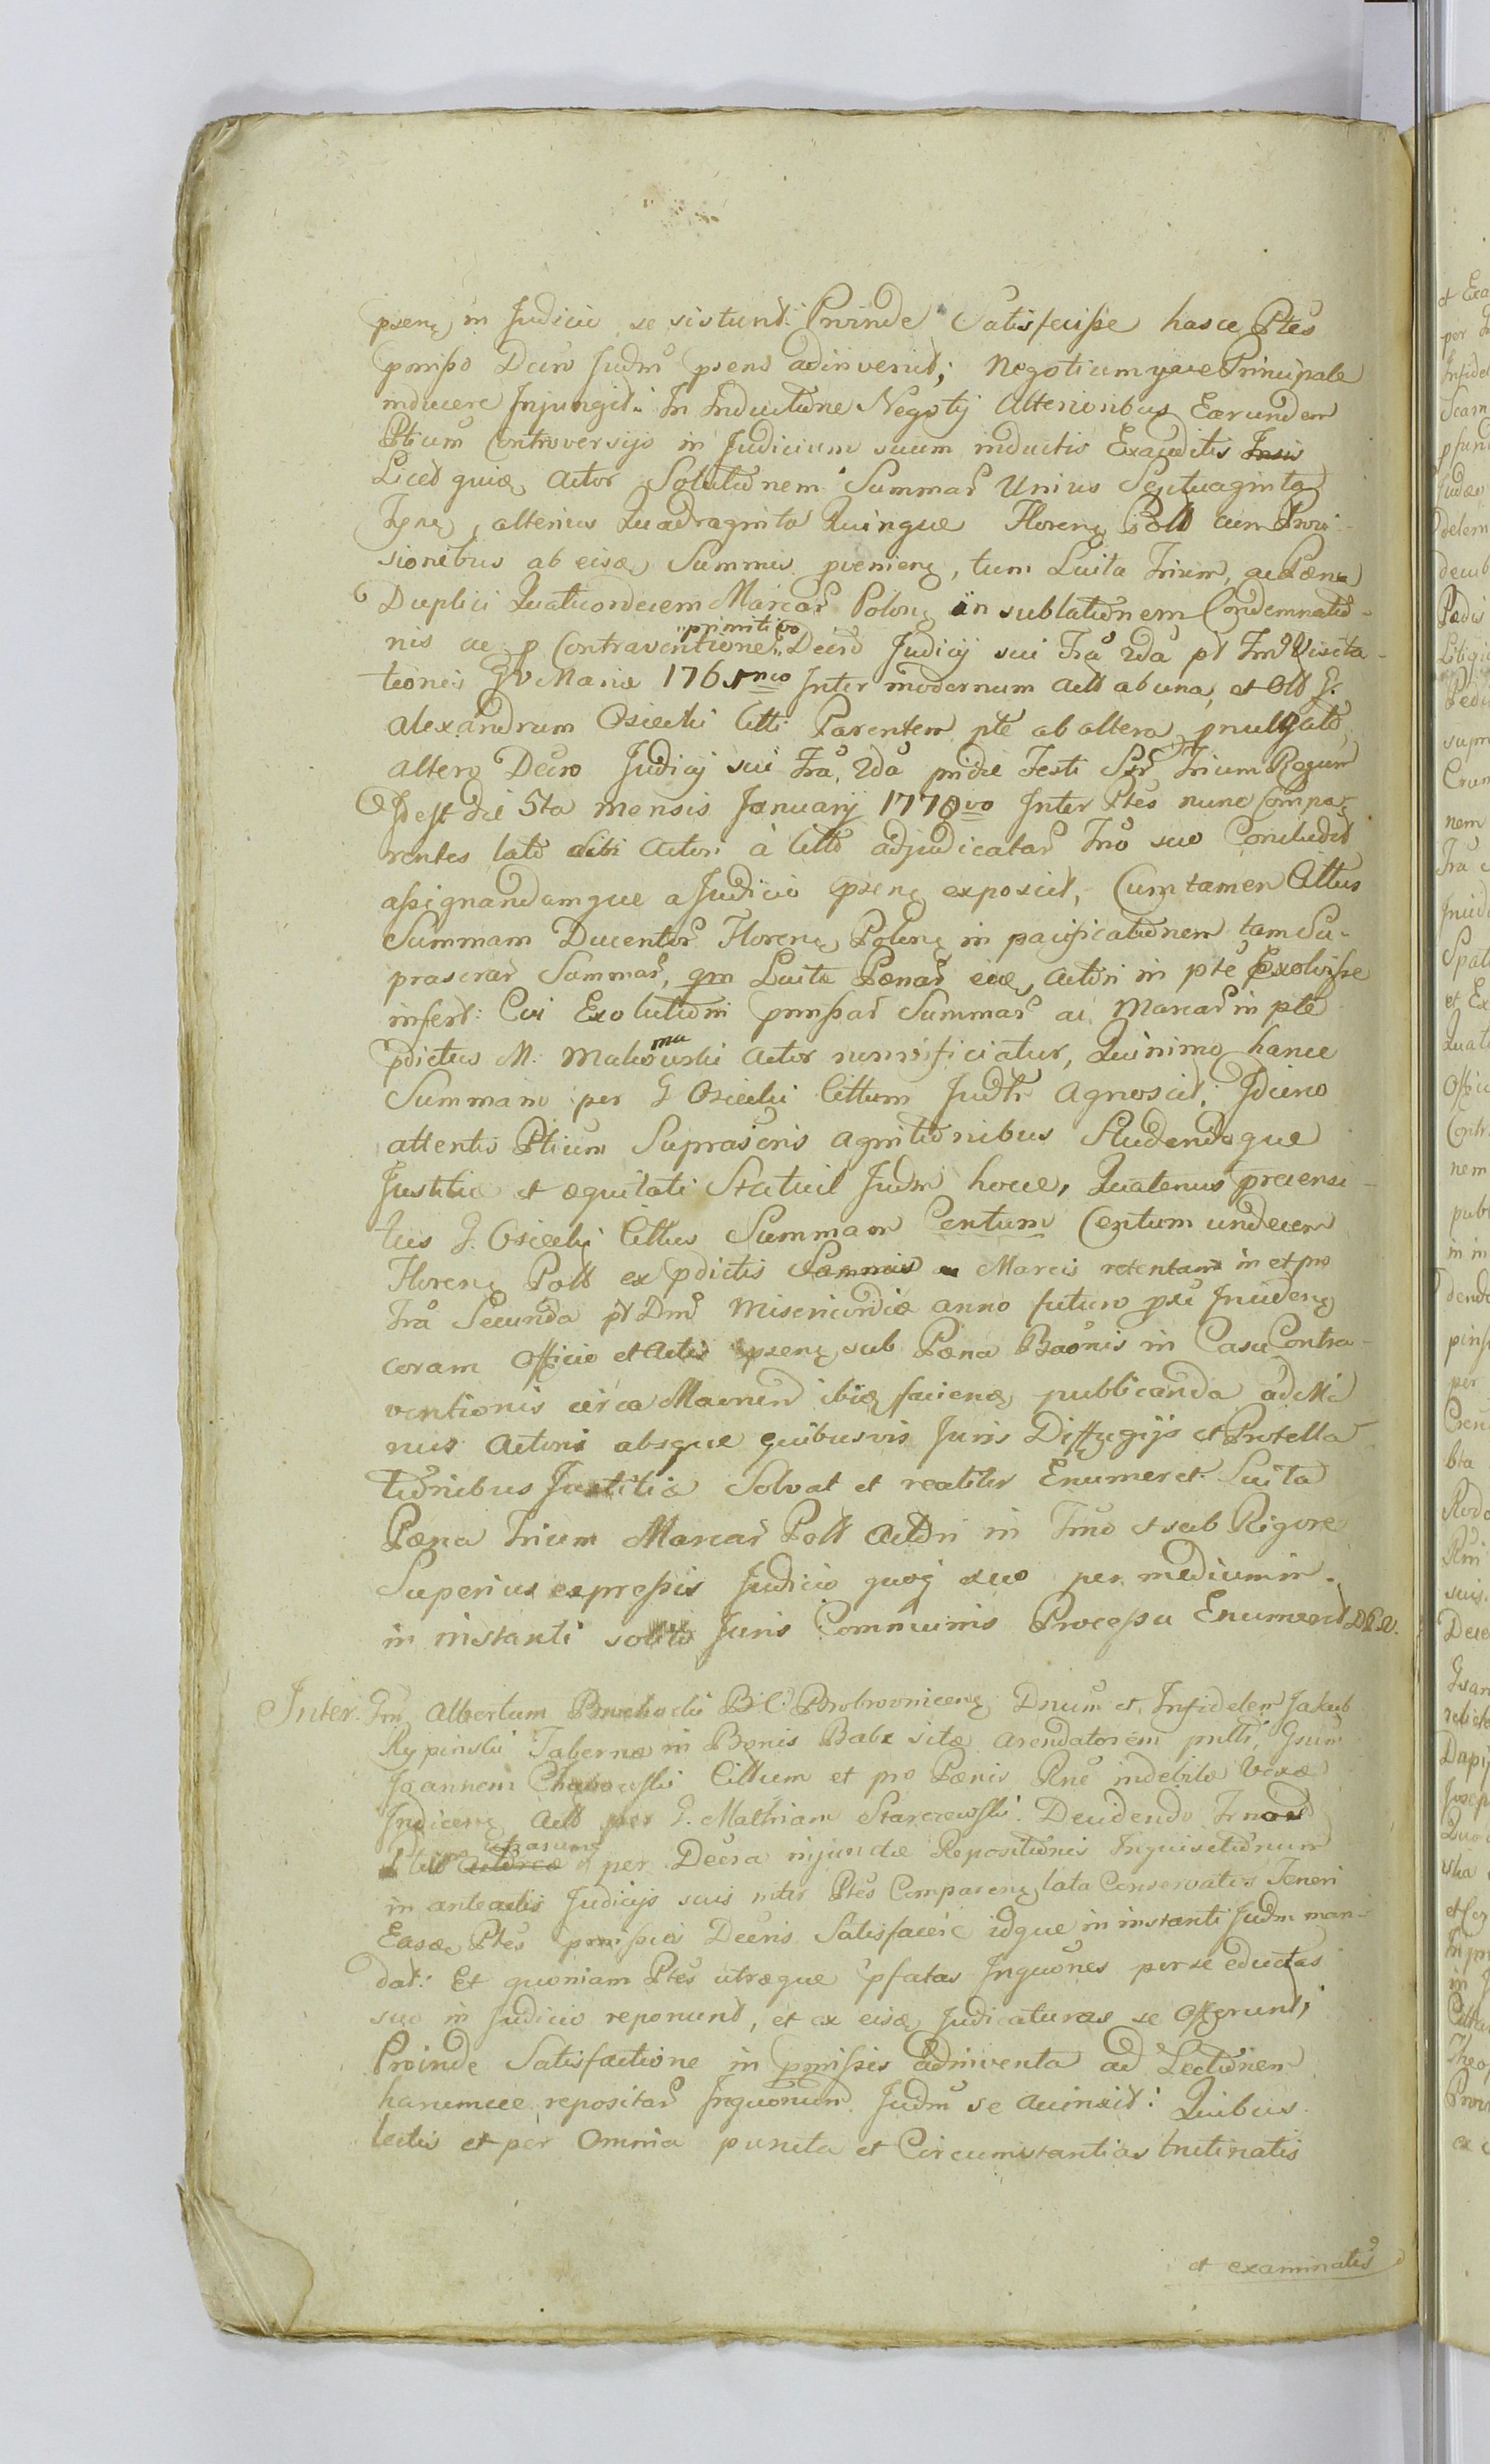 psenę in Judicio se sistunt: Proinde Satisfecisse hasce Ptes
pmisso Decro Judm psens adinvenit; Negotiumque Principale
inducere Injungit: In Inductione Negotij Ulterioribus Earundem
Ptium Controversijs in Judicium suum inductis Exauditis
Licet quia Actor Solutionem Summar Unius Septuaginta
alterius Quadraginta Quinque Florenę Poll cum Provi-
sionibus ab eisdę Summis pvenienę, tum Luita Trium, ac Pæna
Duplici Quatuordecem Marcar Polonę in sublationem Condemnatio-
nis ac p Contraventione "primitivo" Decro Judicij sui Fra 2da pt Visita-
tionis Mariæ 1765 Inter modernum Actt ab una, et Olt G.
Alexandrum Osiecki Citti Parentem pte ab altera pmulgato,
altero Decro Judicij sui Fra 2da pridie Festi Trium Regum
Id est die 5ta mensis January 1778vo Inter Ptes nunc Compa-
rentes lato sibi Actori à Citto adjudicatar Tno suo Concludit
assignandamque a Judicio psenę exposcit, Cum tamen Cittus
Summam Ducentor Florenę Polonę in pacificationem tam Su-
prascrar Summar, qm Luita Pænar eidę, Actori in pte Exolvisse
infert: Cui Exolutioni pmissar Summar ac Marcar in pte
pdictus M. Makomaski Actor nunnificiatur, Quinimo hance
Summam per G Osiecki Cittum Judtr Agnoscit; Idcirco
attentis Ptium Suprascris agnitionibus Studendoque
Justitiæ et æquitati Statuit Judm hocce, Quatenus precensi-
tus G. Osiecki Cittus Summam Centum Centum undecem
Florenę Poll ex pdictis Summis ac Marcis retentam in et pro
Fra Secunda pt Dm Misericordiæ anno futuro Incidenę
coram Officio et Actis psenę sub Pæna Baonis in Casu Contra-
ventionis circa Maonem ibidę faciendę publicanda ad Ma-
nus Actoris absque quibusvis Juris Diffugijs et Protella-
tionibus Justitiæ Solvat et realiter Enumeret. Luita
Pæna Trium Marcar Poll Actori in Tno et sub Rigore
Superius expressis Judicio quoq suo per medium in.
in instanti solito Juris Communis Processu Enumeret
Inter Gm Albertum B.C. Bobrownicenę Dnum et Infidelem Jakub
Rypinski Tabernæ in Bonis Babe sitæ Arendatorem Gsum
Joannem Cittum et pro Pænis Rne indebitæ Vexæ
Indicenę Actt per G. Mathiam Starczewski. Decidendo
utrarumq per Decra injunctæ Repositionis Inquisitionum
in anteactis Judicijs suis inter Ptes Comparenę lata Conservatis Teneri
Easdę Ptes pmissis Decris Satisfacere idque in instanti Judm man-
dat: Et quoniam Ptes utræque pfatas Inquones per se eductas
suo in Judicio reponunt, et ex eisdę Judicaturas se Offerunt;
Proinde Satisfactione in pmissis adinventa ad Lectionem
harumce repositar Inquonum Judm se accinxit: Quibus
lectis et per Omnia puncta et Circumstantias trutinatis
et examinatis